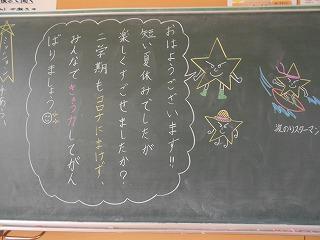 おはようございます!!
短い夏休みでしたが
楽しくすごせましたか？
二学期もコロナにまけず、
みんなできょう力してがん
ばりましょう
波のりスターマン